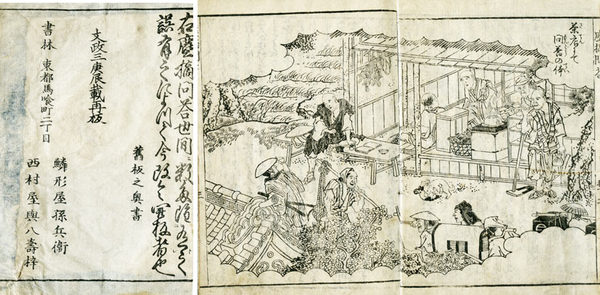 茶店にて
問答の体
右塵摘問答世間ニ類多
誤有之によつて今改之開板者也
舊板之奥書
文政三庚辰載再板
書林 東都馬喰町二丁目
鱗形屋孫兵衛
西村屋與八壽梓